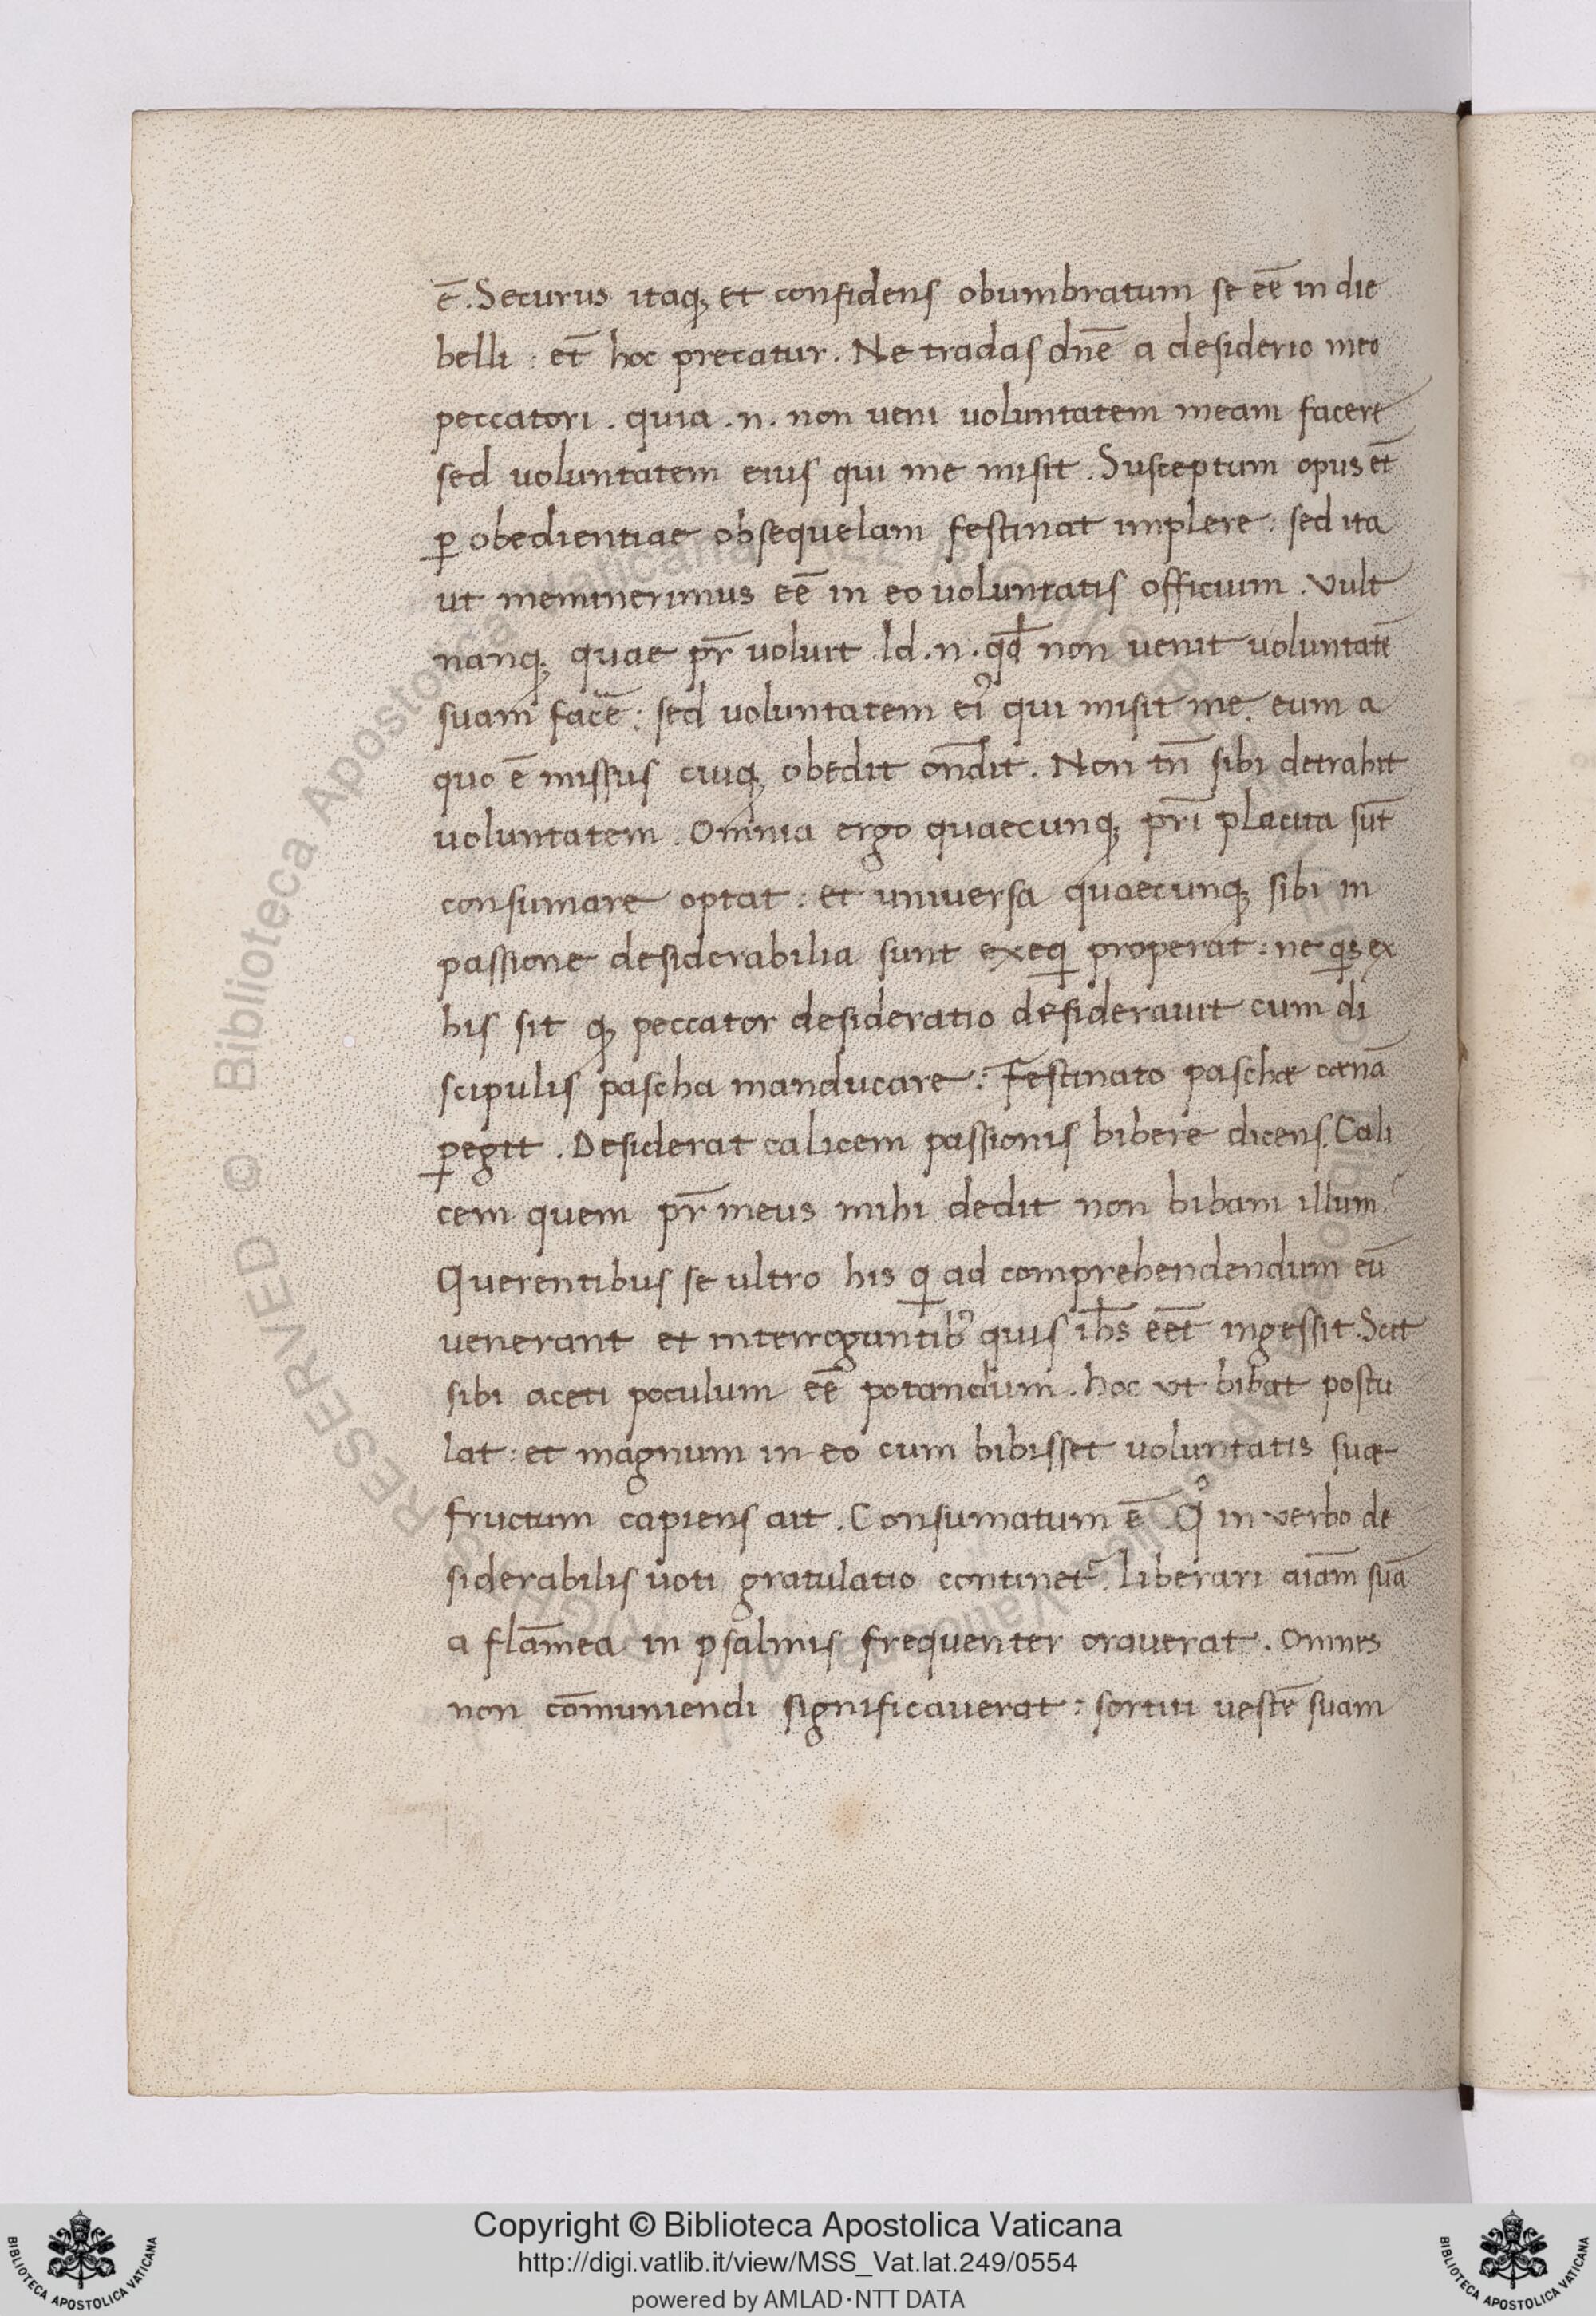 ē. Securus itaq; et confidens obumbratum se eē in die
belli : et̄ hoc precatur. Ne tradas dn̄e a desiderio meo
peccatori. quia .n. non veni voluntatem meam facere
sed voluntatem eius qui me misit. Susceptum opus et̄
ꝑ obedientiae obsequelam festinat implere: sed ita
ut meminerimus eē in eo voluntatis officium. Vult
nanq; quae pr̄ voluit. Id .n. qđ non venit voluntatē
suam facē: sed voluntatem eiꝰ qui misit me. eum a
quo ē missus cuiq; obedit on̄dit. Non tn̄ sibi detrahit
voluntatem. Omnia ergo quaecunq; pr̄i placita sūt
consumare optat: et universa quaecunq; sibi in
passione desiderabilia sunt exeꝗ properat: ne ꝗs ex
his sit q; peccator desideratio desideravit cum di
scipulis pascha manducare: Festinato paschæ cœnā
ꝑegit. Desiderat calicem passionis bibere dicens. Cali
cem quem pr̄ meus mihi dedit non bibam illum?
Querentibus se ultro his ꝗ ad comprehendendum eū
venerant et interrogantibꝰ quis ih̄s eēt ingessit. Scit
sibi aceti poculum eē potandum. hoc ut bibat postu
lat: et magnum in eo cum bibisset voluntatis suæ
fructum capiens ait. Consumatum ē. Qͦ in verbo de
siderabilis voti gratulatio continet᷑. Liberari aīam suā
a flāmea in psalmis frequenter oraverat. Omnes
non cōmuniendi significaverat: sortiri vestē suam
© Biblioteca Apostolica Vaticana
RIGHTS RESERVED
Copyright © Biblioteca Apostolica Vaticana
http://digi.vatlib.it/view/MSS_Vat.lat.249/0554
powered by AMLAD·NTT DATA
BIBLIOTECA APOSTOLICA VATICANA
BIBLIOTECA APOSTOLICA VATICANA